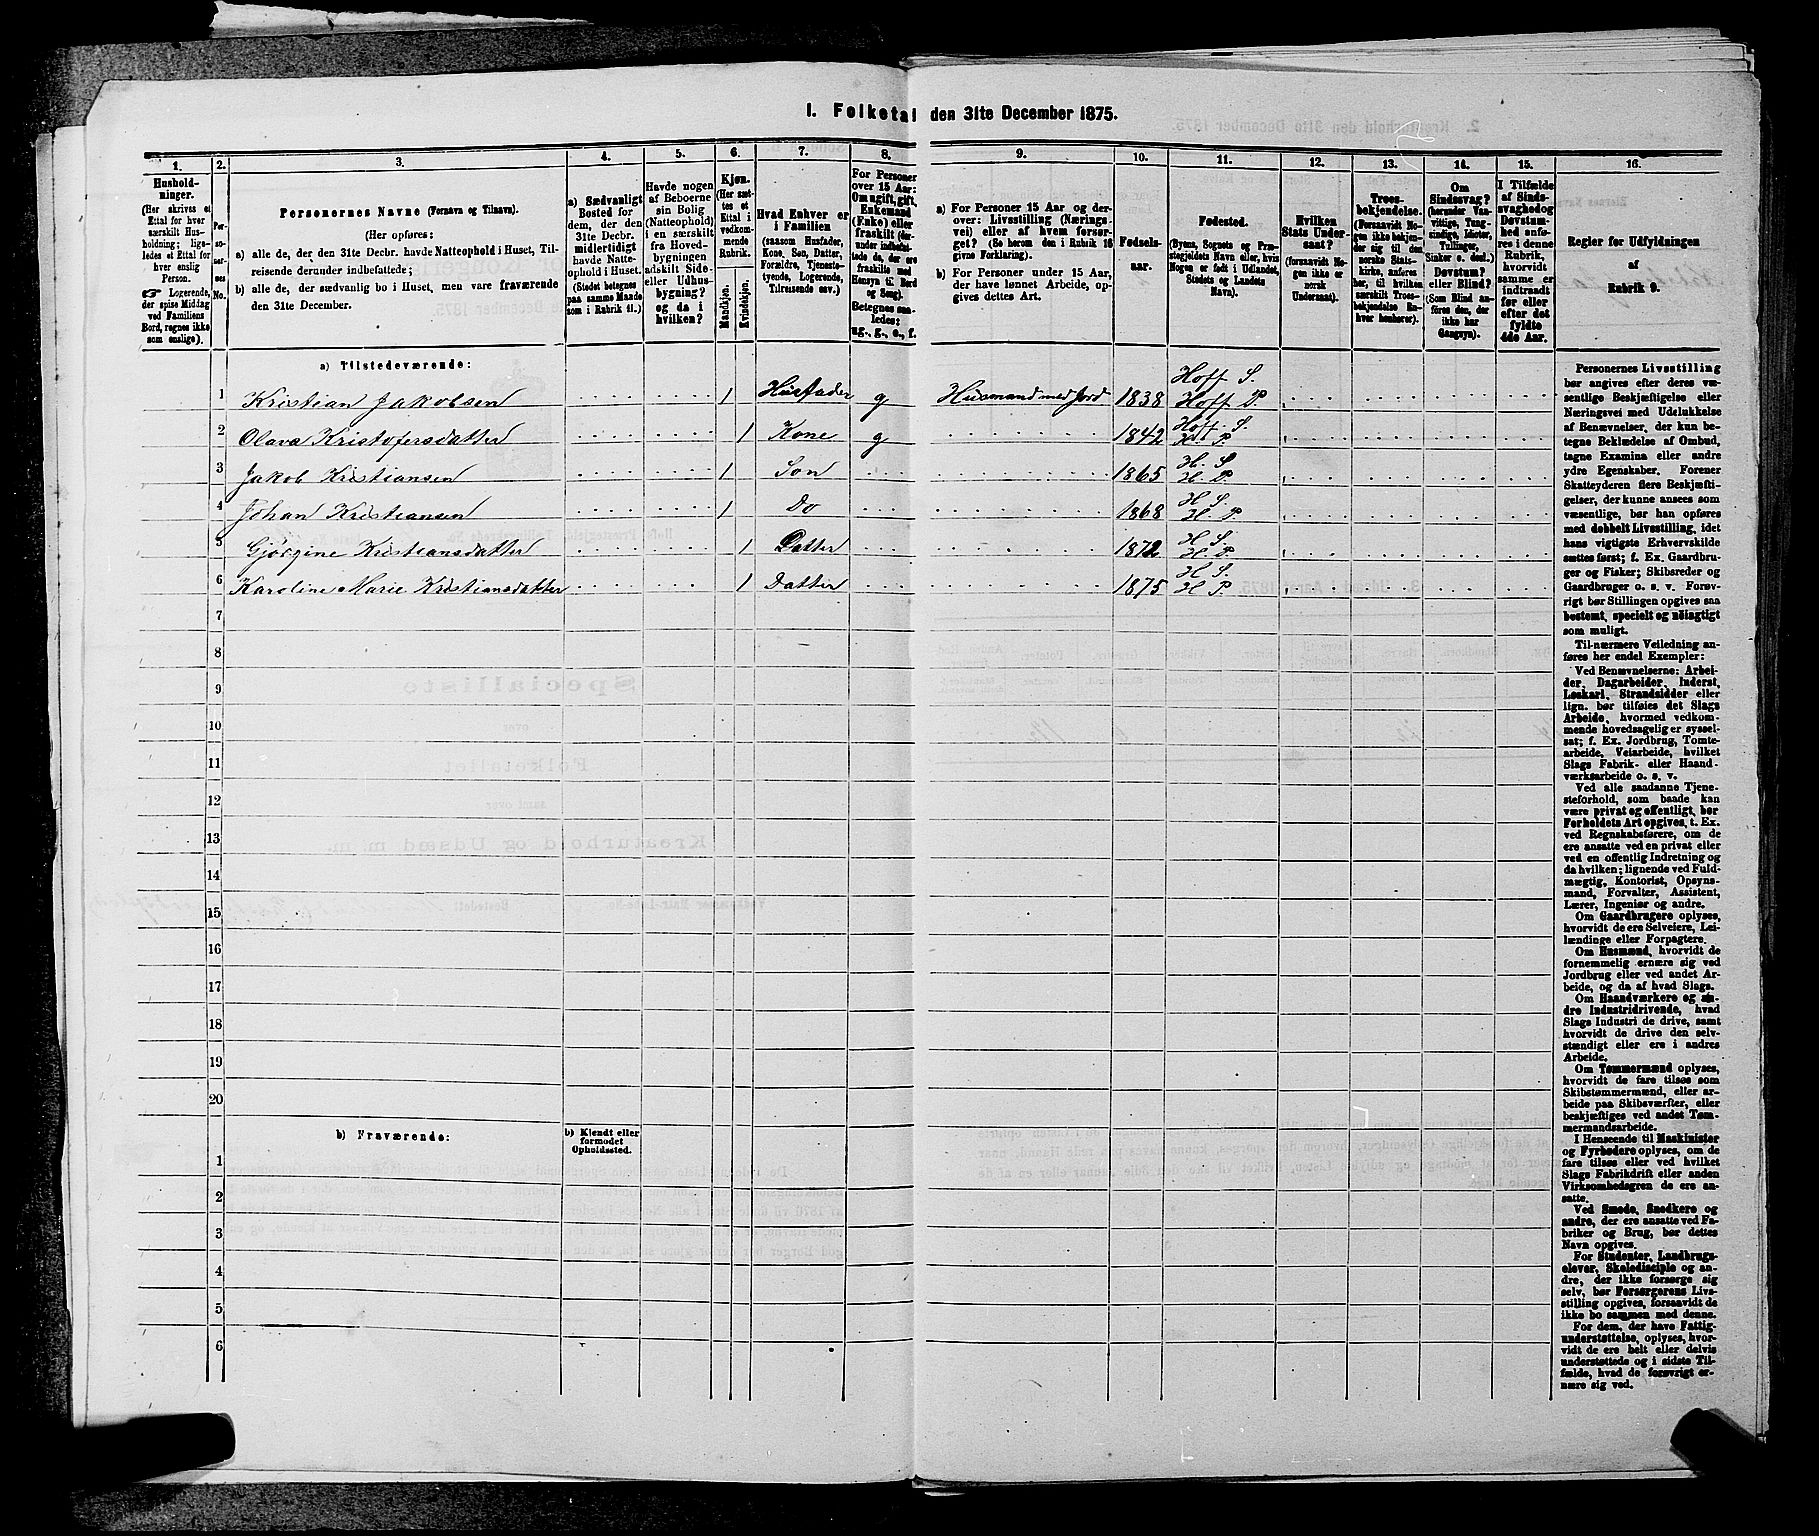 I. Folketal den 31te December 1875.
1. 2. 3. 4. 5. 6. 7. 8. 9. 10. 11. 12. 13. 14. 15. 16.
Hushold-
ninger.
(Her skrives et
Ettal for hver
særskilt Hus-
holdning; lige-
ledes et Ettal for
hver enslig
Person.
☞ Logerende,
der spise Middag
ved Familiens
Bord, regnes ikke
som enslige).
Per-
so-
ner-
nes
No.
Personernes Navne (Fornavn og Tilnavn).
(Her opføres:
a) alle de, der den 31te Decbr. havde Natteophold i Huset, Til-
reisende derunder indbefattede;
b) alle de, der sædvanlig bo i Huset, men vare fraværende
den 31te December.
a) Sædvanligt
Bosted for
dem, der den
31te Decbr.
midlertidigt
havde Natte-
ophold i Huset.
(Stedet betegnes
paa samme Maade
som i Rubrik 11.)
Havde nogen
af Beboerne
sin Bolig
(Natteophold)
i en særskilt
fra Hoved-
bygningen
adskilt Side-
eller Udhus-
bygning?
og da i
hvilken?
Kjøn.
(Her sæt-
tes et
Ettal i
vedkom-
mende
Rubrik.
Mandkjøn.
Kvindekjøn.
Hvad Enhver er
i Familien
(saasom Husfader,
Kone, Søn, Datter,
Forældre, Tjeneste-
tyende, Logerende,
Tilreisende osv.)
For Personer
over 15 Aar:
Om ugift, gift,
Enkemand
(Enke) eller
fraskilt (der-
under indbefat-
tede de, der ere
fraskilte med
Hensyn til Bord
og Seng).
Betegnes saa-
ledes:
ug., g., e., f.
a) For Personer 15 Aar og der-
over: Livsstilling (Nærings-
vei) eller af hvem forsør-
get? (Se herom den i Rubrik 16
givne Forklaring).
b) For Personer under 15 Aar,
der have lønnet Arbeide, op-
gives dettes Art.
Fødsels-
aar.
Fødested.
(Byens, Sognets og Præ-
stegjeldets Navn eller, hvis
Nogen er født i Udlandet,
Stedets og Landets
Navn).
Hvilken
Stats Under-
saat?
(forsaavidt No-
gen ikke er
norsk
Undersaat).
Troes-
bekjendelse.
(Forsaavidt No-
gen ikke bekjen-
der sig til den
norske Stats-
kirke, anføres
her, til hvilken
særskilt Troes-
bekjendelse En-
hver henhører).
Om
Sindssvag?
(herunder Van-
vittige, Tung-
sindige, Idioter,
Tullinger,
Sinker o. desl.)
Døvstum?
eller Blind?
(Som Blind an-
føres den, der
ikke har
Gangsyn).
I Tilfælde
af Sinds-
svaghed og
Døvstum-
hed anfø-
res i denne
Rubrik,
hvorvidt
samme er
indtraadt
før eller
efter det
fyldte
4de Aar.
Regler for Udfyldningen
af
Rubrik 9.
a) Tilstedeværende:
1 Kristian Jakobsen 1 Husfader g Husmand med Jord 1838 Hoff S. Hoff P.
2 Olava Kristofersdatter 1 Kone g 1842 Hoff S. H. P.
3 Jakob Kristiansen 1 Søn 1865 H. S. H. P.
4 Johan Kristiansen 1 Do 1868 H. S. H. P.
5 Gjørgine Kristiansdatter 1 Datter 1872 H S. H. P.
6 Karoline Marie Kristiansdatter 1 Datter 1875 H. S. H P.
7
8
9
10
11
12
13
14
15
16
17
18
19
20
b) Fraværende:
b) Kjendt eller
formodet
Opholdssted.
1
2
3
4
5
6
Personernes Livsstilling
bør angives efter deres væ-
sentlige Beskjæftigelse eller
Næringsvei med Udelukkelse
af Benævnelser, der kun be-
tegne Beklædelse af Ombud,
tagne Examina eller andre
ydre Egenskaber. Forener
Skatteyderen flere Beskjæfti-
gelser, der kunne ansees som
væsentlige, bør han opføres
med dobbelt Livsstilling, idet
hans vigtigste Erhvervskilde
sættes først; f. Ex. Gaardbru-
ger og Fisker; Skibsreder og
Gaardbruger o. s. v. Forøv-
rigt bør Stillingen opgives saa
bestemt, specielt og nøiagtigt
som muligt.
Til nærmere Veiledning an-
føres her endel Exempler:
Ved Benævnelserne: Arbei-
der, Dagarbeider, Inderst,
Løskarl, Strandsidder eller
lign. bør tilføies det Slags
Arbeide, hvormed vedkom-
mende hovedsagelig er syssel-
sat; f. Ex. Jordbrug, Tomte-
arbeide, Veiarbeide, hvilket
Slags Fabrik- eller Haand-
værksarbeide o. s. v.
Ved alle saadanne Tjene-
steforhold, som baade kan
være privat og offentligt, bør
Forholdets Art opgives, t. Ex.
ved Regnskabsførere, om de
ere ansatte ved en privat eller
ved en offentlig Indretning og
da hvilken; lignende ved Fuld-
mægtig, Kontorist, Opsyns-
mand, Forvalter, Assistent,
Lærer, Ingeniør og andre.
Om Gaardbrugere oplyses,
hvorvidt de ere Selveiere, Lei-
lændinge eller Forpagtere.
Om Husmænd, hvorvidt de
fornemmelig ernære sig ved
Jordbrug eller ved andet Ar-
beide, og da af hvad Slags.
Om Haandværkere og an-
dre Industridrivende, hvad
Slags Industri de drive, samt
hvorvidt de drive den selv-
stændigt eller ere i andres
Arbeide.
Om Tømmermænd oplyses,
hvorvidt de fare tilsøs som
Skibstømmermænd, eller ar-
beide paa Skibsværfter, eller
beskjæftiges ved andet Tøm-
mermandsarbeide.
I Henseende til Maskinister
og Fyrbødere oplyses, om de
fare tilsøs eller ved hvilket
Slags Fabrikdrift eller anden
Virksomhedsgren de ere an-
satte.
Ved Smede, Snedkere og
andre, der ere ansatte ved Fa-
briker og Brug, bør dettes
Navn opgives.
For Studenter, Landbrugs-
elever, Skoledisciple og an-
dre, der ikke forsørge sig
selv, bør Forsørgerens Livs-
stilling opgives, forsaavidt de
ikke bo sammen med denne.
For dem, der have Fattig-
understøttelse, oplyses, hvor-
vidt de ere helt eller delvis
understøttede og i sidste Til-
fælde, hvad de forøvrigt er-
nære sig ved.